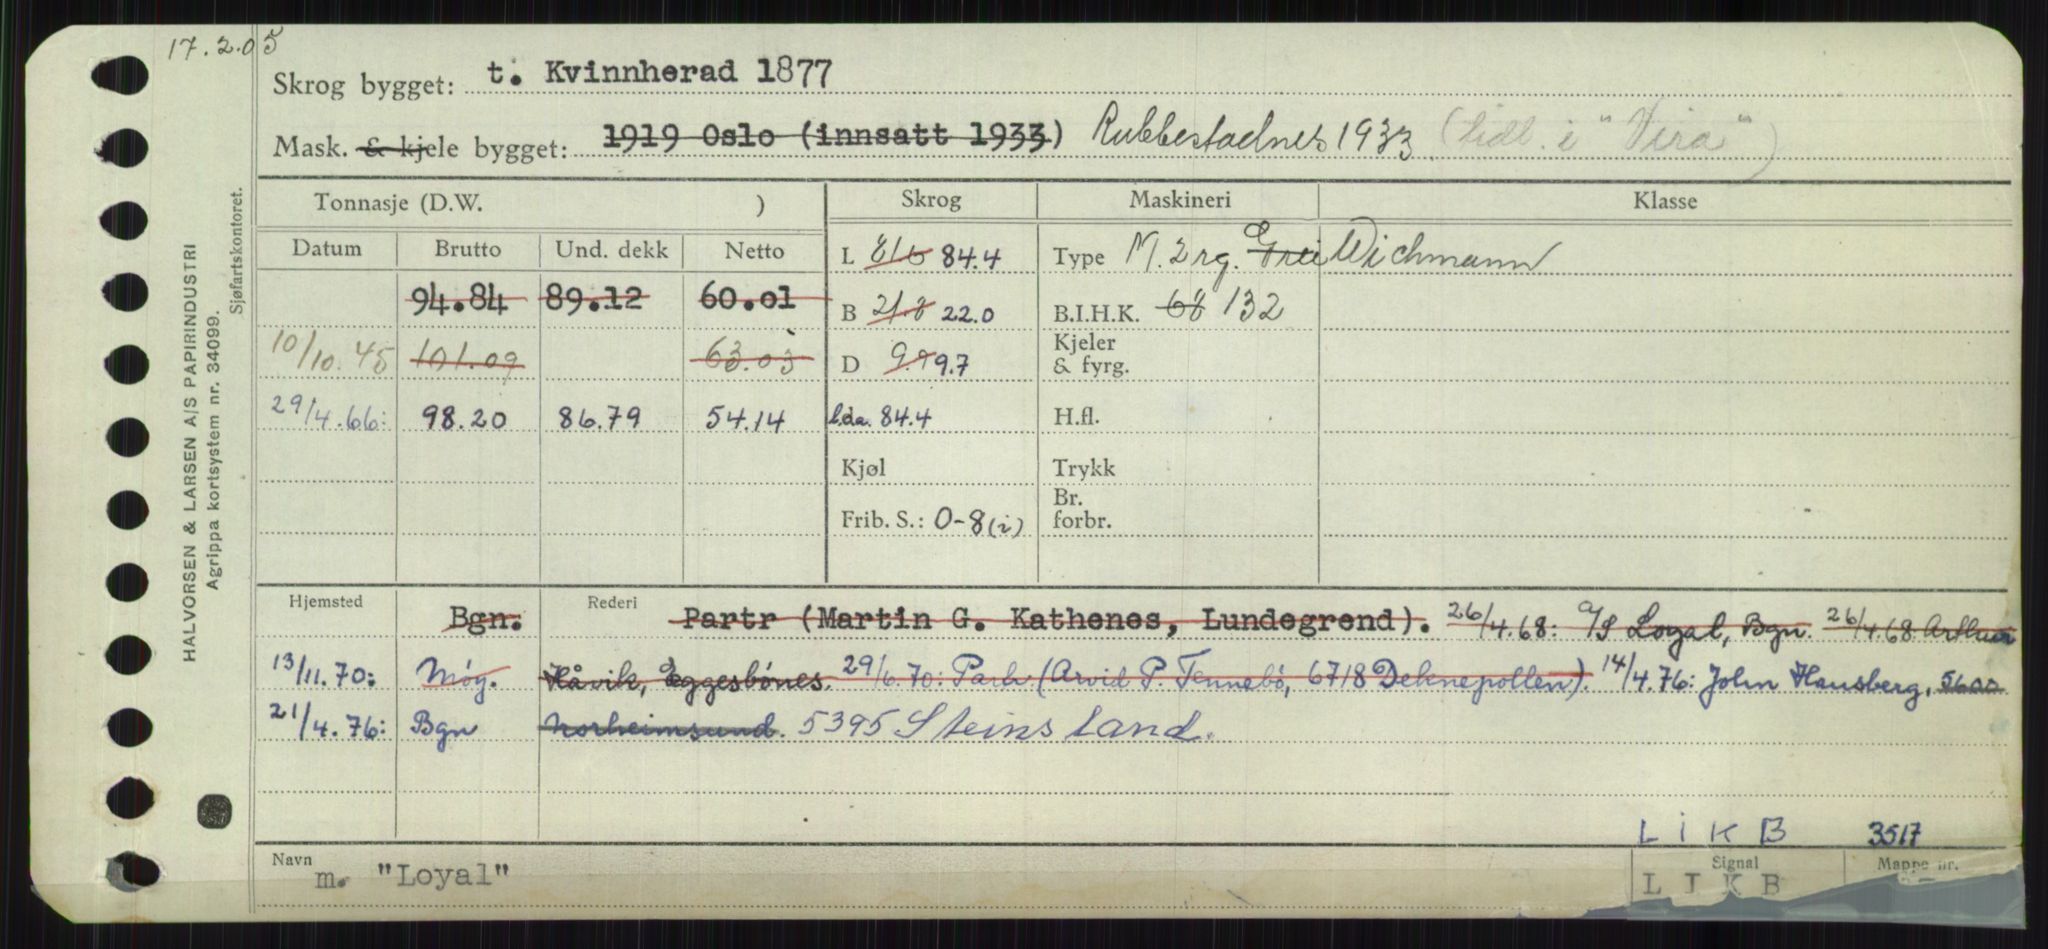 17.2.05
Skrog bygget: t. Kvinnherad 1877
Mask. & kjele bygget: 1919 Oslo (innsatt 1933) Rubbestadnes 1933 (tidl. i "Vira")
Tonnasje (D.W. ) Skrog Maskineri Klasse
Datum Brutto Und. dekk Netto L 81.6 84.4 Type M. 2 rg. Wichmann
94.84 89.12 60.01 B 21.8 22.0 B.I.H.K. 68 132
10/10.45 101.09 63.03 D 9.9 9.7 Kjeler & fyrg.
29/4.66: 98.20 86.79 54.14 l.d.a. 84.4 H.fl.
Kjøl Trykk
Frib. S.: 0-8(i) Br. forbr.
Hjemsted Bgn. Rederi Partr (Martin G. Kathenes, Lundegrend). 26/4.68: A/S Loyal, Bgn. 26/4.68 Arthur
13/11.70: Møy. Håvik, Eggesbönes. 29/6.70: Partr (Arvid P. Tennebö, 6718 Deknepollen). 14/4.76: John Hausberg, 5600
21/4.76: Bgn Norheimsund. 5395 Steinsland.
L I K B 3517
Navn m. "Loyal" Signal L I K B Mappe nr.
HALVORSEN & LARSEN A/S PAPIRINDUSTRI
Agrippa kortsystem nr. 34099.
Sjøfartskontoret.